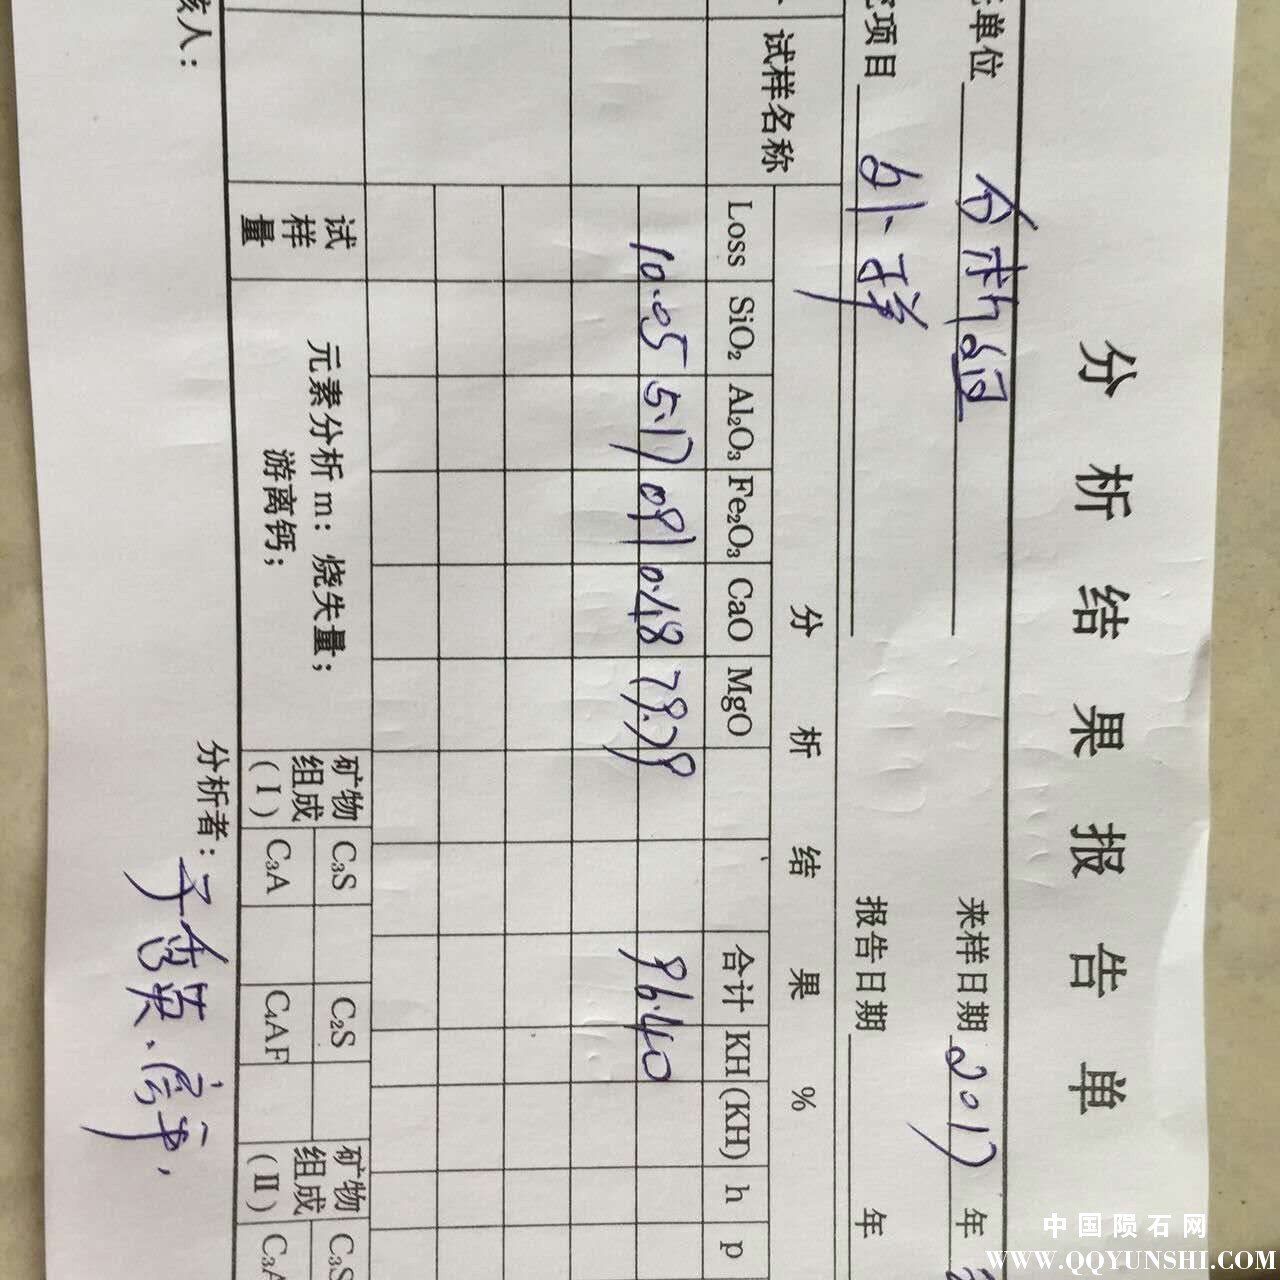 分析结果报告单
单位 分析组 来样日期 2017 年
项目 外样 报告日期 年
试样名称 分析结果 %
Loss SiO₂ Al₂O₃ Fe₂O₃ CaO MgO 合计 KH (KH) h p
10.05 5.17 0.91 0.48 79.79 96.40
试样量 元素分析 m: 烧失量; 矿物组成(Ⅰ) C₃S C₂S 矿物组成(Ⅱ) C₃S
游离钙; C₃A C₄AF C₃A
核人: 分析者:
中国陨石网
WWW.QQYUNSHI.COM